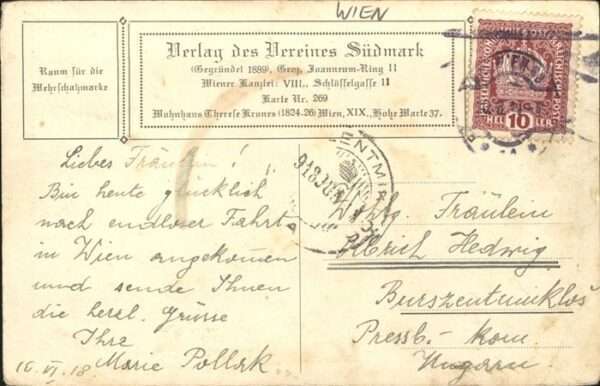 WIEN
Raum für die
Wehrschatzmarke
Verlag des Vereines Südmark
(Gegründet 1889), Graz, Joanneum-Ring 11
Wiener Kanzlei: VIII., Schlösselgasse 11
Karte Nr. 269
Wohnhaus Therese Krones (1824-26) Wien, XIX., Hohe Warte 37.
10
HELLER
Liebes Fräulein!
Bin heute glücklich
nach endloser Fahrt
in Wien angekommen
und sende Ihnen
die herzl. Grüsse
Ihre
Marie Pollak
16. VI. 18.
918 JU
Fräulein
Ulbrich Hedwig
Burszentmiklós
Pressb. - kom.
Ungarn